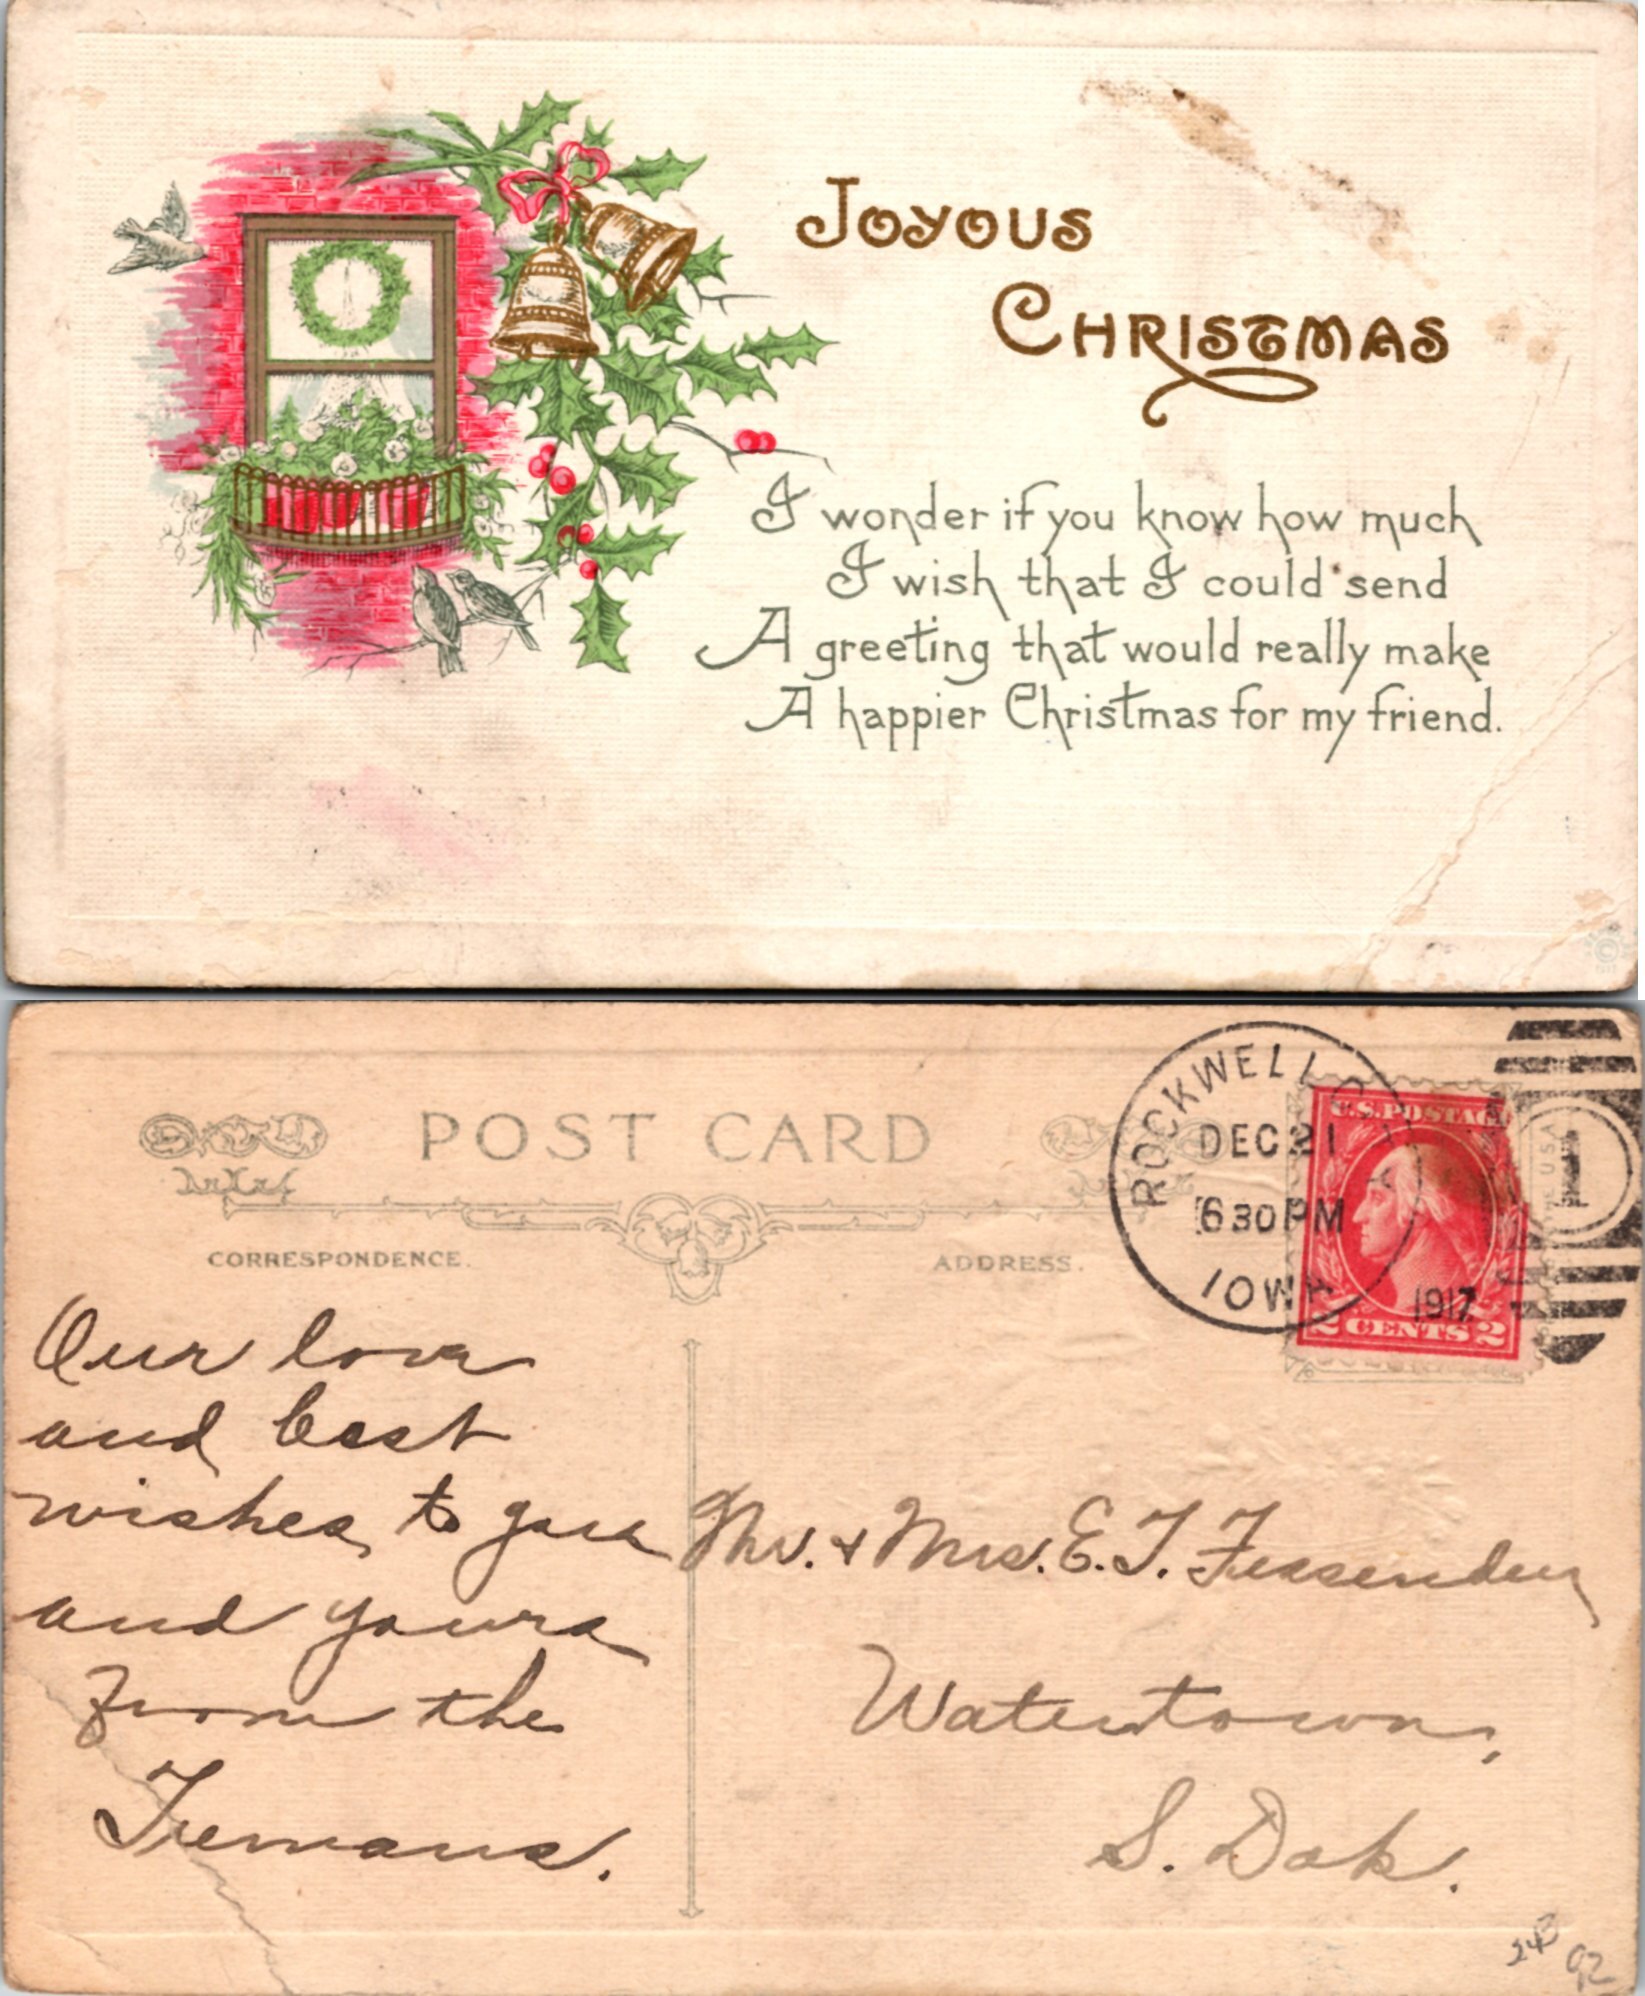 JOYOUS
CHRISTMAS
I wonder if you know how much
I wish that I could send
A greeting that would really make
A happier Christmas for my friend.
POST CARD
CORRESPONDENCE.
ADDRESS.
ROCKWELL
DEC 21
630 PM
IOWA
1917
U.S. POSTAGE
2 CENTS 2
1
Our love
and best
wishes to you
and yours
From the
Tremans.
Mr. & Mrs. E. T. Fessenden,
Watertown,
S. Dak.
24B
92